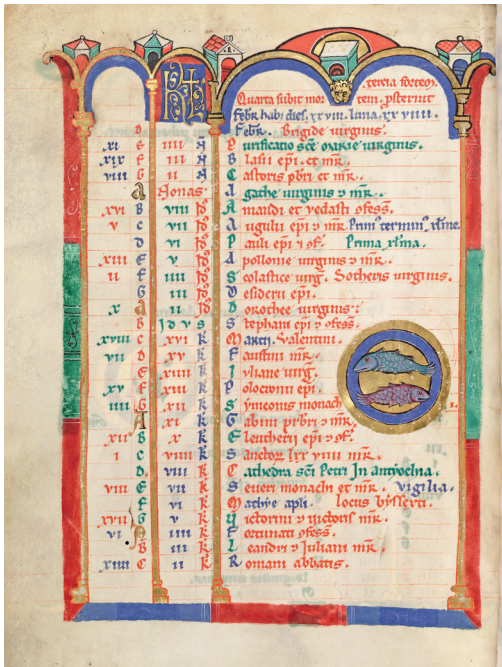 Quarta subit mor tem . psternit tercia fortem.
KL Febr. hab; dies. xxviii. luna. xxviiii.
D Febr. Brigide virginis.
xi E iiii N Purificatio sce marie virginis.
xix F iii N Blasii epi. et mr.
viii G ii N Castoris pbri et mr.
A Nonas Agathe virginis ⁊ mr.
xvi B viii Id Amandi et vedasti ofess.
v C vii Id Auguli epi ⁊ mr.
D vi Id Pauli epi ⁊ of.
xiii E v Id Appollonie virginis ⁊ mr.
ii F iiii Id Scolastice virg. Sotheris virginis.
G iii Id Desiderii epi.
x A ii Id Dorothee virginis:
B Idus Stephani epi ⁊ ofess.
xviii C xvi k Marci. Valentini.
vii D xv k Faustini mr.
E xiiii k Iuliane virg.
xv F xiii k Polocronii epi.
iiii G xii k Symeonis monach
A xi k Gabini prbri ⁊ mr.
xii B x k Eleutherii epi ⁊ of.
i C viiii k Sanctor lxx viiii mr.
D viii k Cathedra sci Petri In antyochia.
viii E vii k Seueri monachi et mr. vigilia.
F vi k Mathye apli. locus bysserti.
xvii G v k Victorini ⁊ victoris mr.
vi A iiii k Fortunati ofess.
B iii k Leandri ⁊ Juliani mr.
xiiii C ii k Romani abbatis.